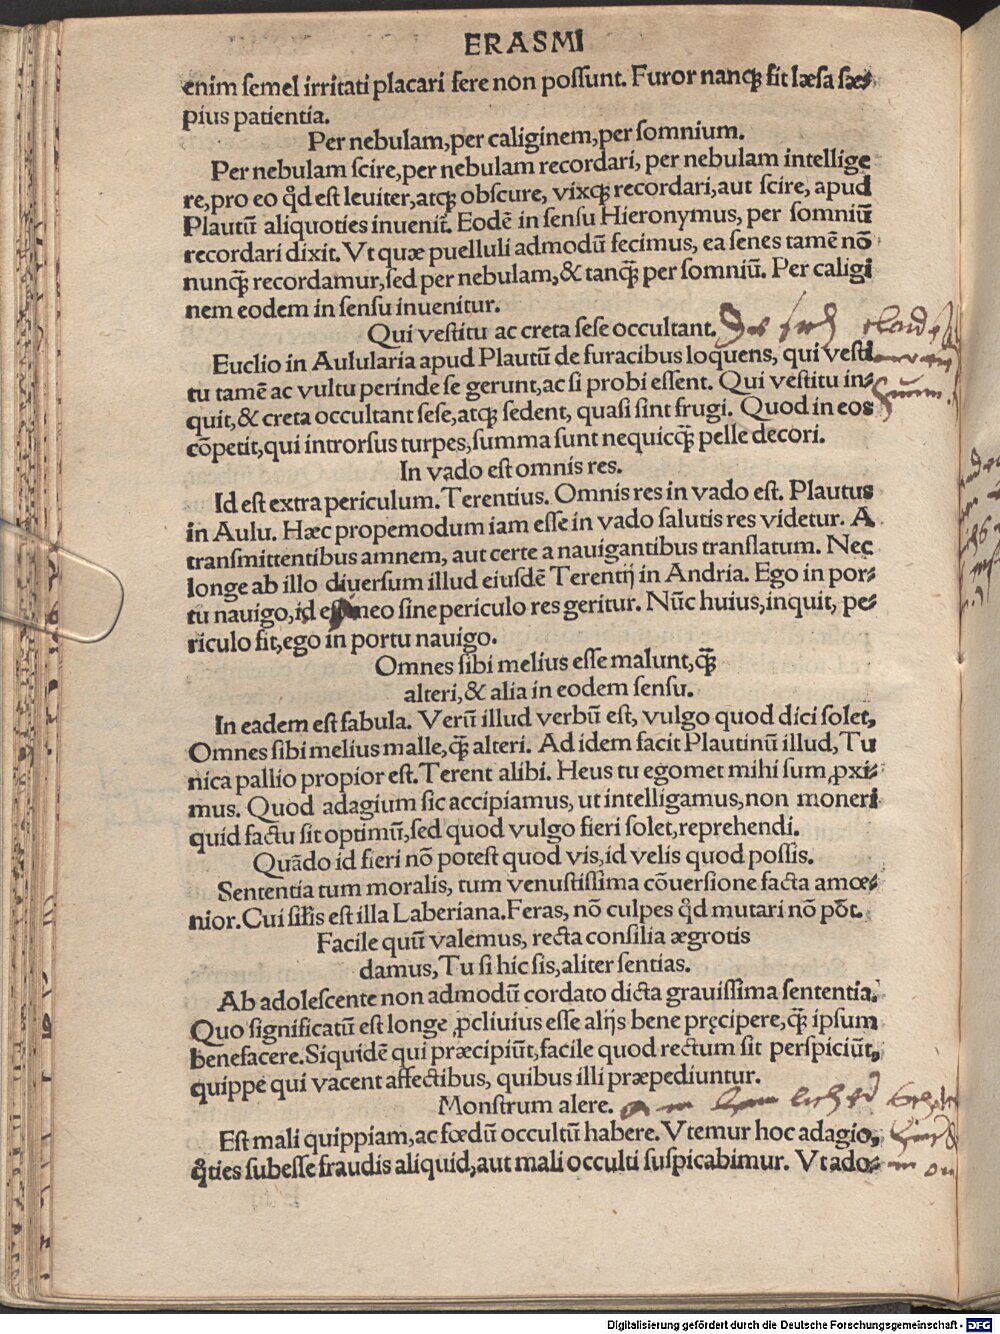 ERASMI
enim ſemel irritati placari fere non poſſunt. Furor nanqꝫ fit læſa ſæ⸗
pius patientia.
Per nebulam,per caliginem,per ſomnium.
Per nebulam ſcire,per nebulam recordari, per nebulam intellige
re,pro eo qd̄ eſt leuiter,atqꝫ obſcure, vixqꝫ recordari,aut ſcire, apud
Plautū aliquoties inuenit. Eodē in ſenſu Hieronymus, per ſomniū
recordari dixit. Vt quæ puelluli admodū fecimus, ea ſenes tamē nō
nunqꝫ̄ recordamur,ſed per nebulam,& tanqꝫ̄ per ſomniū. Per caligi
nem eodem in ſenſu inuenitur.
Qui veſtitu ac creta ſeſe occultant.
Euclio in Aulularia apud Plautū de furacibus loquens, qui veſti
tu tamē ac vultu perinde ſe gerunt,ac ſi probi eſſent. Qui veſtitu in⸗
quit,& creta occultant ſeſe,atqꝫ ſedent, quaſi ſint frugi. Quod in eos
cōpetit,qui introrſus turpes,ſumma ſunt nequicqꝫ̄ pelle decori.
In vado eſt omnis res.
Id eſt extra periculum. Terentius. Omnis res in vado eſt. Plautus
in Aulu. Hæc propemodum iam eſſe in vado ſalutis res videtur. A
tranſmittentibus amnem, aut certe a nauigantibus tranſlatum. Nec
longe ab illo diuerſum illud eiuſdē Terentij in Andria. Ego in por⸗
tu nauigo,id eſt meo ſine periculo res geritur. Nūc huius,inquit, pe⸗
riculo fit,ego in portu nauigo.
Omnes ſibi melius eſſe malunt,qꝫ̄
alteri,& alia in eodem ſenſu.
In eadem eſt fabula. Verū illud verbū eſt, vulgo quod dici ſolet,
Omnes ſibi melius malle,qꝫ̄ alteri. Ad idem facit Plautinū illud,Tu
nica pallio propior eſt. Terent alibi. Heus tu egomet mihi ſum ꝓxi⸗
mus. Quod adagium ſic accipiamus, ut intelligamus,non moneri
quid factu ſit optimū,ſed quod vulgo fieri ſolet,reprehendi.
Quādo id fieri nō poteſt quod vis,id velis quod poſſis.
Sententia tum moralis, tum venuſtiſſima cōuerſione facta amœ⸗
nior. Cui ſiſis eſt illa Laberiana. Feras, nō culpes qd̄ mutari nō pōt.
Facile quū valemus, recta conſilia ægrotis
damus,Tu ſi hic ſis,aliter ſentias.
Ab adoleſcente non admodū cordato dicta grauiſſima ſententia.
Quo ſignificatū eſt longe ꝓcliuius eſſe alijs bene pręcipere,qꝫ̄ ipſum
benefacere. Siquidē qui præcipiūt,facile quod rectum ſit perſpiciūt,
quippe qui vacent affectibus, quibus illi præpediuntur.
Monſtrum alere.
Eſt mali quippiam,ac fœdū occultū habere. Vtemur hoc adagio,
q̄ties ſubeſſe fraudis aliquid,aut mali occulti ſuſpicabimur. Vt ado⸗
Digitalisierung gefördert durch die Deutsche Forschungsgemeinschaft - DFG